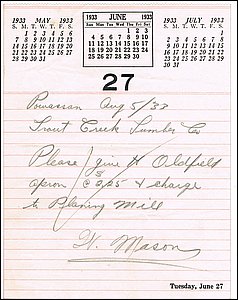 1933 MAY 1933
S. M. T. W. T. F. S.
1 2 3 4 5 6
7 8 9 10 11 12 13
14 15 16 17 18 19 20
21 22 23 24 25 26 27
28 29 30 31
1933 JUNE 1933
Sun Mon Tue Wed Thu Fri Sat
1 2 3
4 5 6 7 8 9 10
11 12 13 14 15 16 17
18 19 20 21 22 23 24
25 26 27 28 29 30
1933 JULY 1933
S. M. T. W. T. F. S.
1
2 3 4 5 6 7 8
9 10 11 12 13 14 15
16 17 18 19 20 21 22
23 24 25 26 27 28 29
30 31
27
Powassan Aug 5/33
Trout Creek Lumber Co
Please give H Oldfield
apron @ & charge
to Planing Mill
W. Mason
Tuesday, June 27